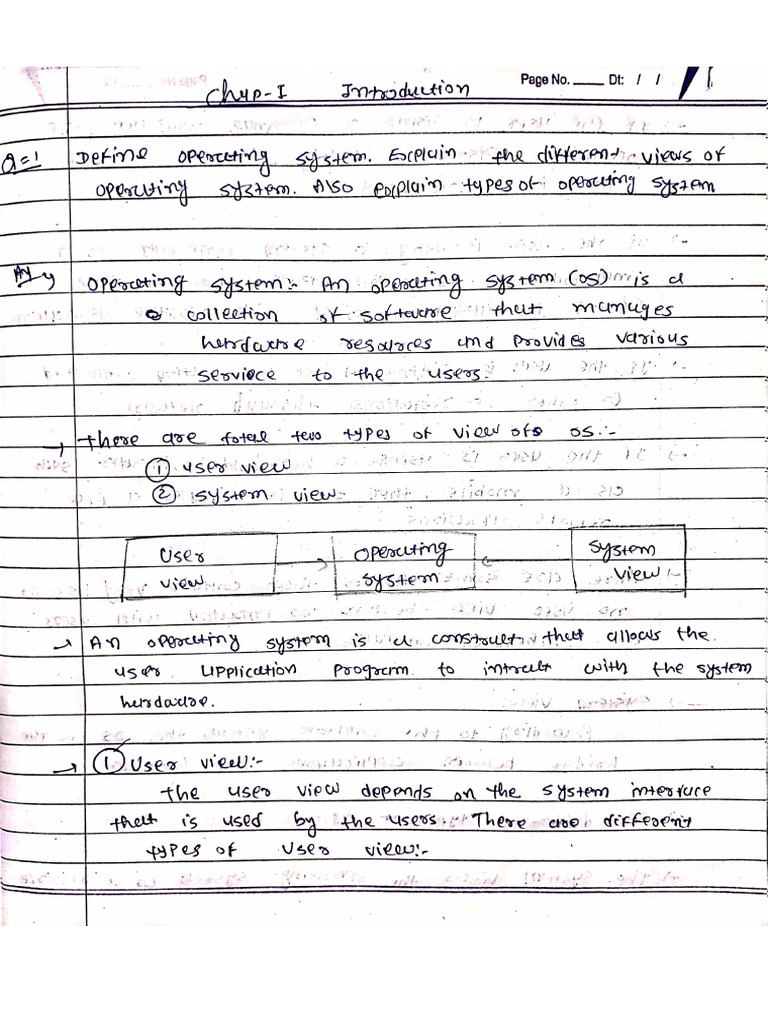 Page No. _____ Dt: / /
Chap-I Introduction
Q=1 Define operating system. Explain the different views of
operating system. Also explain types of operating system
Ans operating system:- An operating system (os) is a
collection of software that manages
hardware resources and provides various
service to the users.
→ There are total two types of view of os:-
① user view
② system view
User view
operating system
system view
→ An operating system is a construct that allows the
user application program to intract with the system
hardware.
→ ① User view:-
the user view depends on the system interface
that is used by the users. There are different
types of user view:-